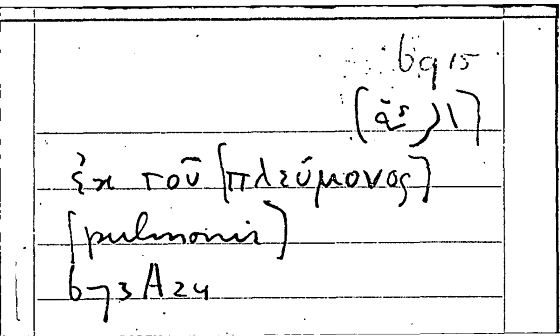 6915
ἐκ τοῦ [πλεύμονος]
[pulmonis]
673 A 24